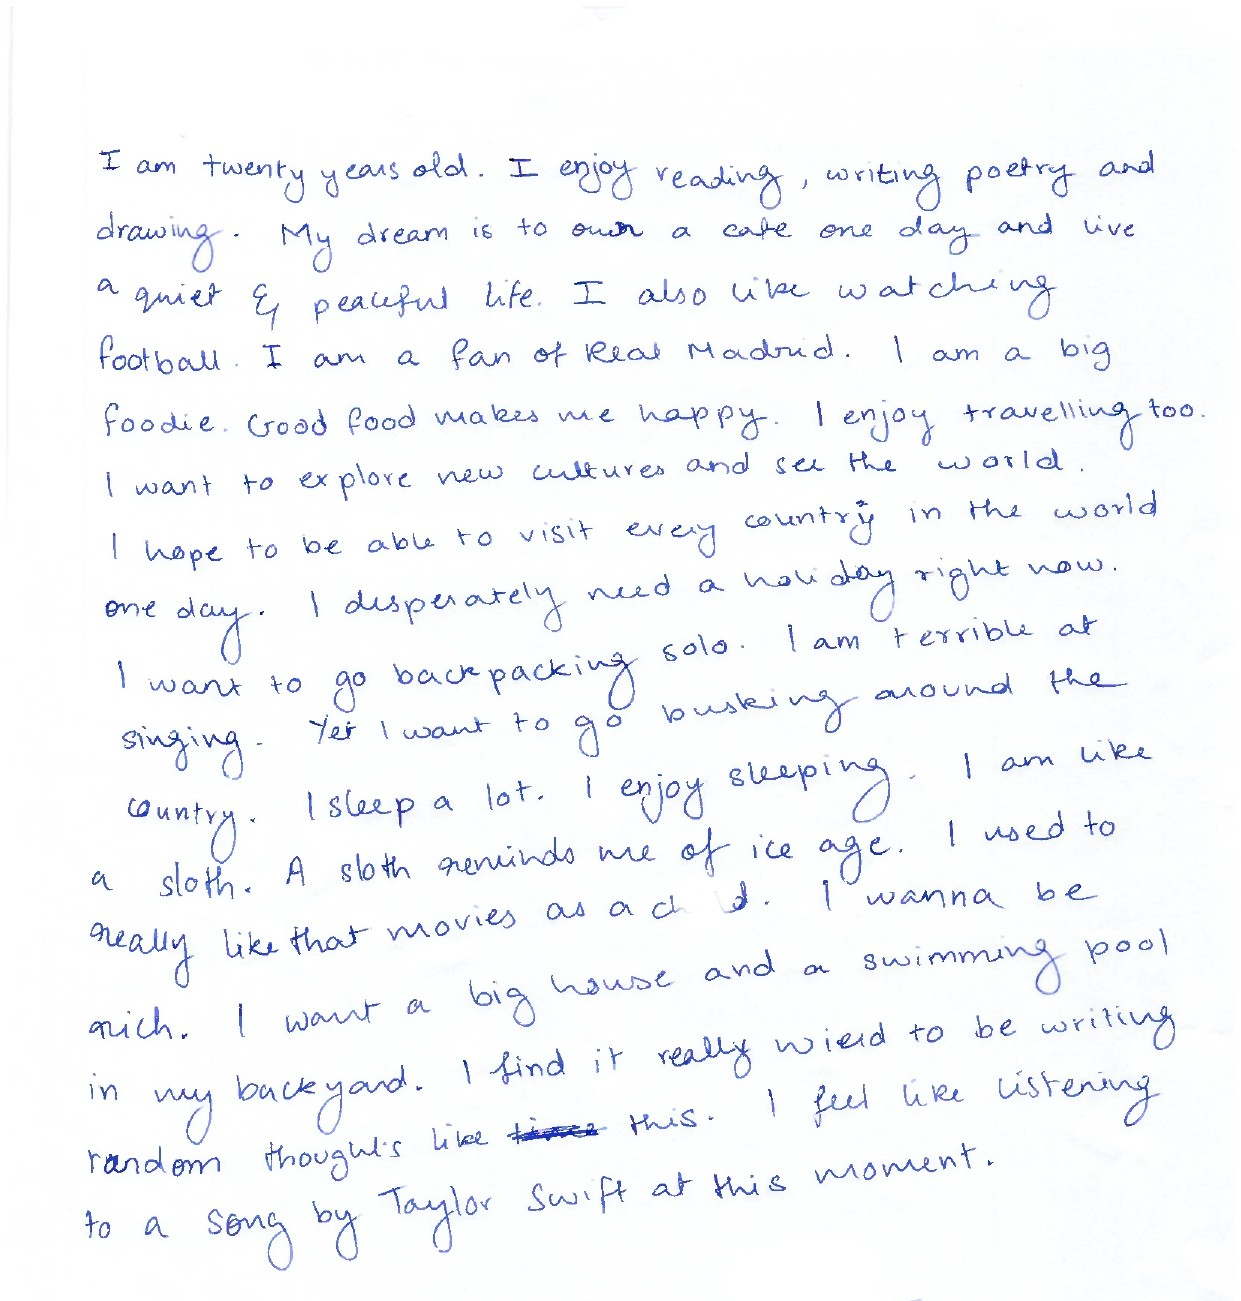 I am twenty years old. I enjoy reading, writing poetry and
drawing. My dream is to own a cafe one day and live
a quiet & peaceful life. I also like watching
football. I am a fan of Real Madrid. I am a big
foodie. Good food makes me happy. I enjoy travelling too.
I want to explore new cultures and see the world.
I hope to be able to visit every country in the world
one day. I desperately need a holiday right now.
I want to go backpacking solo. I am terrible at
singing. Yet I want to go busking around the
country. I sleep a lot. I enjoy sleeping. I am like
a sloth. A sloth reminds me of ice age. I used to
really like that movies as a. I wanna be
rich. I want a big house and a swimming pool
in my backyard. I find it really wierd to be writing
random thoughts like this. I feel like listening
to a song by Taylor Swift at this moment.